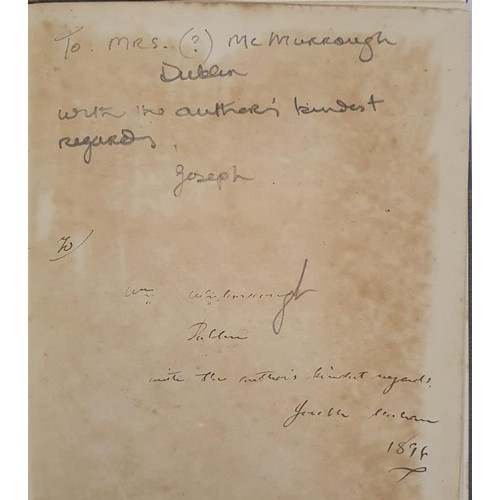 To. MRS. (?) McMurrough
Dublin
with the author's kindest
regards,
Joseph
To
Dublin
with the author's kindest regards.
Joseph
1896